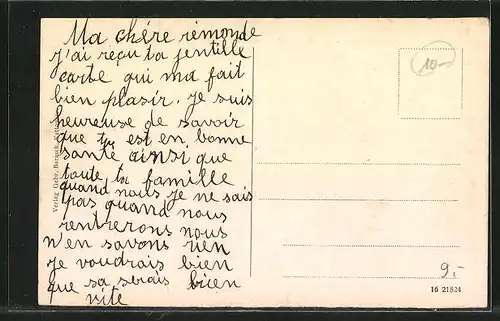 Ma chère remonde
j'ai reçu ta jentille
carte qui ma fait
bien plasir. je suis
heureuse de savoir
que tu est en bonne
santé ainsi que
toute ta famille
quand nous je ne sais
pas quand nous
rentrerons nous
n'en savons rien
je voudrais bien
que sa serais bien
vite
Verlag Gebr.
10-
9.-
16 21824